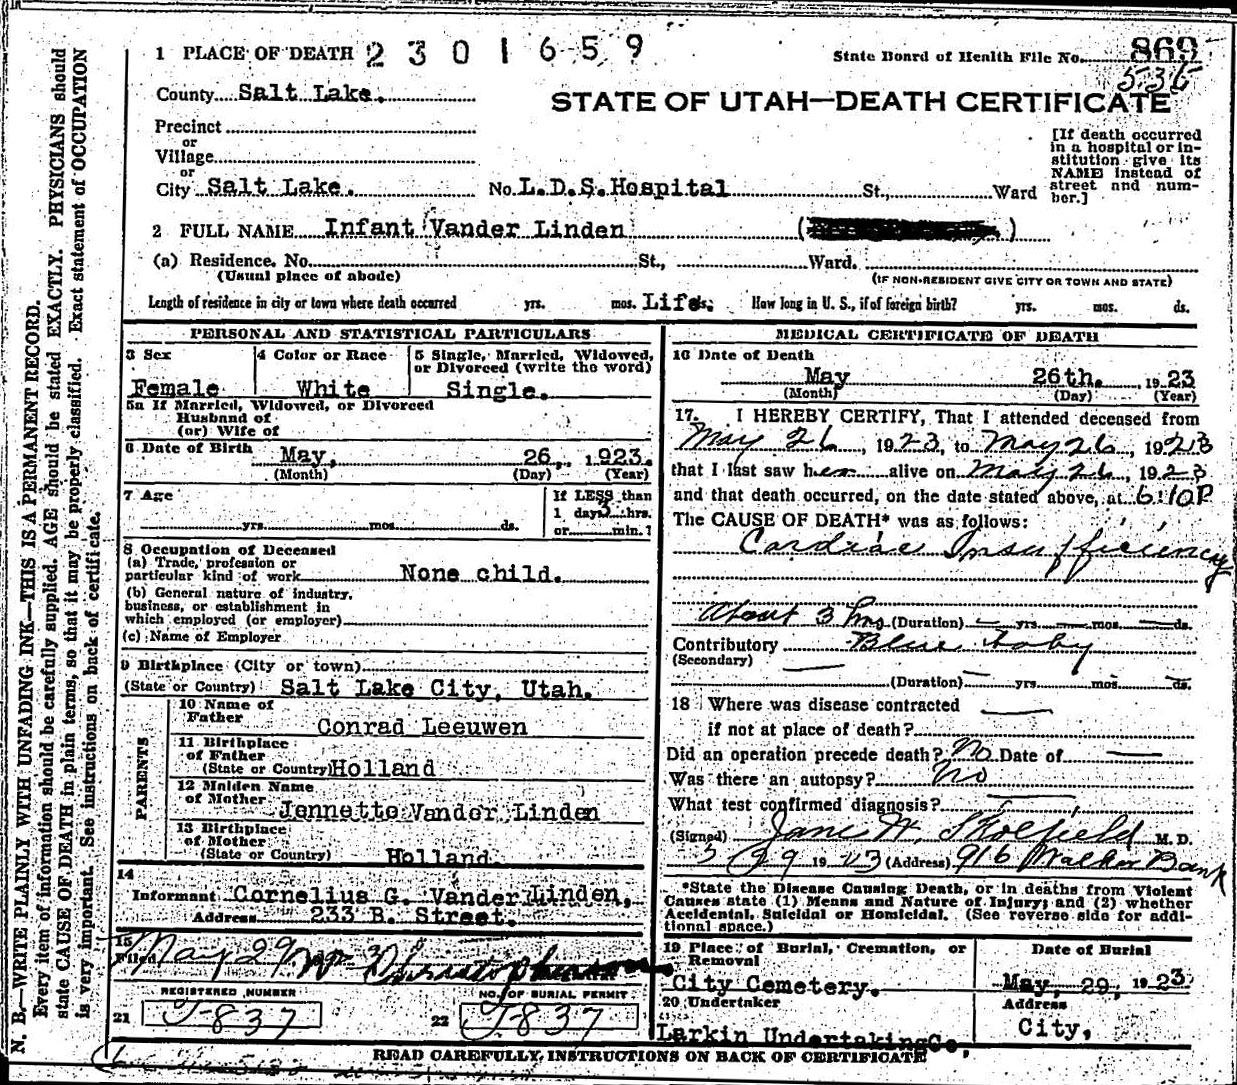 1 PLACE OF DEATH 2 3 0 1 6 5 9
State Board of Health File No. 869
536
County Salt Lake.
STATE OF UTAH—DEATH CERTIFICATE
Precinct
or
Village
or
City Salt Lake. No. L.D.S.Hospital St., Ward
[If death occurred
in a hospital or in-
stitution give its
NAME instead of
street and num-
ber.]
2 FULL NAME Infant Vander Linden ( )
(a) Residence. No. St., Ward.
(Usual place of abode)
(IF NON-RESIDENT GIVE CITY OR TOWN AND STATE)
Length of residence in city or town where death occurred yrs. mos. Life. ds. How long in U. S., if of foreign birth? yrs. mos. ds.
PERSONAL AND STATISTICAL PARTICULARS
3 Sex
Female
4 Color or Race
White
5 Single, Married, Widowed,
or Divorced (write the word)
Single.
5a If Married, Widowed, or Divorced
Husband of
(or) Wife of
6 Date of Birth May, 26, 1923.
(Month) (Day) (Year)
7 Age
yrs. mos. ds.
If LESS than
1 day 3 hrs.
or min.?
8 Occupation of Deceased
(a) Trade, profession or
particular kind of work None child.
(b) General nature of industry,
business, or establishment in
which employed (or employer)
(c) Name of Employer
9 Birthplace (City or town)
(State or Country) Salt Lake City, Utah.
PARENTS
10 Name of
Father Conrad Leeuwen
11 Birthplace
of Father
(State or Country) Holland
12 Maiden Name
of Mother Jennette Vander Linden
13 Birthplace
of Mother
(State or Country) Holland.
14
Informant Cornelius G. Vander Linden,
Address 233 B. Street.
15
Filed May 29
REGISTERED NUMBER
21 J-837
NO. OF BURIAL PERMIT
22 J-837
MEDICAL CERTIFICATE OF DEATH
16 Date of Death
May 26th. , 1923
(Month) (Day) (Year)
17. I HEREBY CERTIFY, That I attended deceased from
May 26, 1923, to May 26, 1923
that I last saw her alive on May 26, 1923
and that death occurred, on the date stated above, at 6:10P
The CAUSE OF DEATH* was as follows:
Cardiac Insufficiency
About 3 hrs. (Duration) yrs. mos. ds.
Contributory Blue baby
(Secondary)
(Duration) yrs. mos. ds.
18 Where was disease contracted
if not at place of death?
Did an operation precede death? No Date of
Was there an autopsy? No
What test confirmed diagnosis?
(Signed) Jane W. Skolfield M. D.
5/29 1923 (Address) 916 Walker Bank
*State the Disease Causing Death, or in deaths from Violent
Causes state (1) Means and Nature of Injury; and (2) whether
Accidental, Suicidal or Homicidal. (See reverse side for addi-
tional space.)
19 Place of Burial, Cremation, or
Removal
City Cemetery.
Date of Burial
May, 29, 1923
20 Undertaker
Larkin Undertaking Co.
Address
City,
READ CAREFULLY, INSTRUCTIONS ON BACK OF CERTIFICATE
N. B.—WRITE PLAINLY WITH UNFADING INK—THIS IS A PERMANENT RECORD.
Every item of information should be carefully supplied. AGE should be stated EXACTLY. PHYSICIANS should
state CAUSE OF DEATH in plain terms, so that it may be properly classified. Exact statement of OCCUPATION
is very important. See instructions on back of certificate.